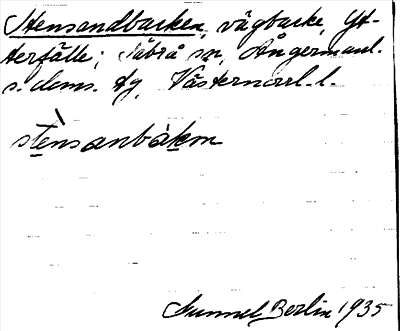 Stensandbacken, vägbacke, Yt-
terfälle; Säbrå sn, Ångermanl.
s. doms. tg, Västernorrl. l.
stènsanbàkₑn
Gunnel Berlin 1935